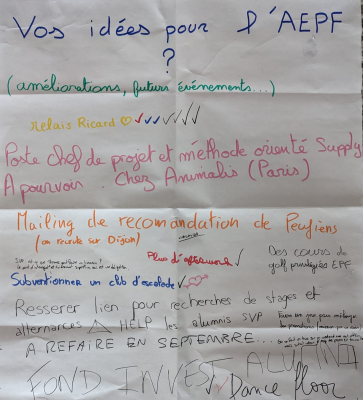 Vos idées pour l'AEPF
?
(améliorations, futurs événements...)
relais Ricard
Poste chef de projet et méthode orienté Supply
A pourvoir. Chez Animalis (Paris)
Mailing de recomandation de Peufiens
(on recrute sur Dijon)
Plus d'afterwork
Des cours de
golf privilégiés EPF
Subventionner un club d'escalade
Resserer lien pour recherches de stages et
alternances HELP les alumnis SVP
A REFAIRE EN SEPTEMBRE...
ALUMNI
FOND INVEST
Dance floor